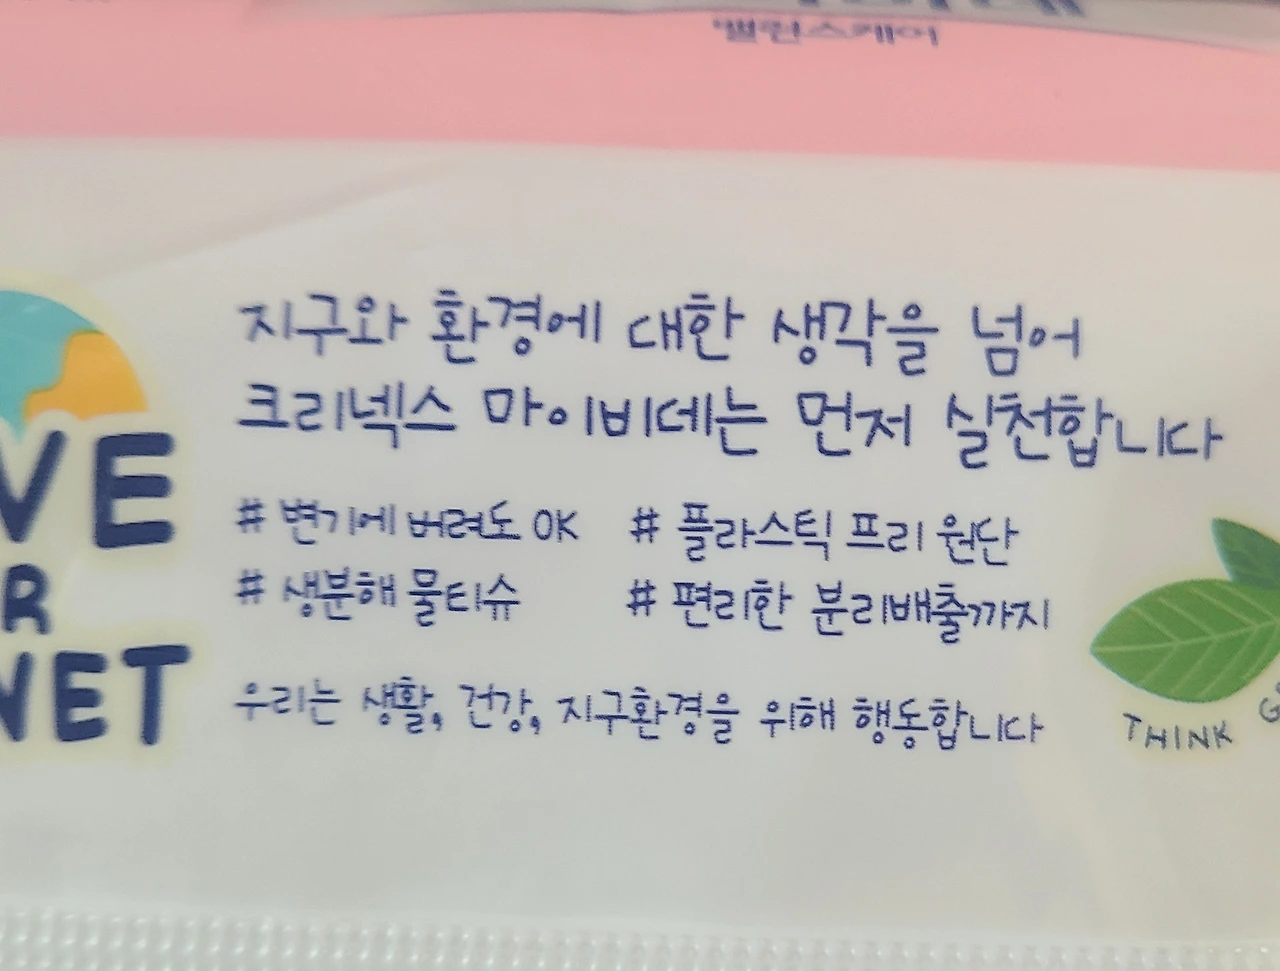 밸런스케어
지구와 환경에 대한 생각을 넘어
크리넥스 마이비데는 먼저 실천합니다
# 변기에 버려도 OK # 플라스틱 프리 원단
# 생분해 물티슈 # 편리한 분리배출까지
우리는 생활, 건강, 지구환경을 위해 행동합니다
VE
R
NET
THINK